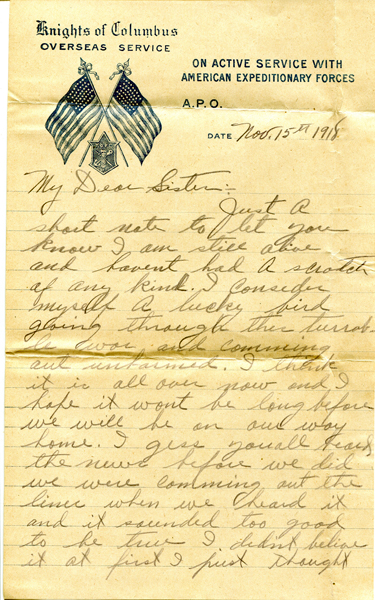 Knights of Columbus
OVERSEAS SERVICE
ON ACTIVE SERVICE WITH
AMERICAN EXPEDITIONARY FORCES
A.P.O.
DATE Nov. 15st 1918
My Dear Sister:-
Just A
short note to let you
know I am still alive
and havent had A scratch
of any kind. I consider
myself A lucky bird
going through this turrab-
le war and comming
out unharmed. I think
it is all over now and I
hope it wont be long before
we will be on our way
home. I gess youall heard
the news before we did
we were comming out the
lines when we heard it
and it sounded too good
to be true I didnt believe
it at first I just thought